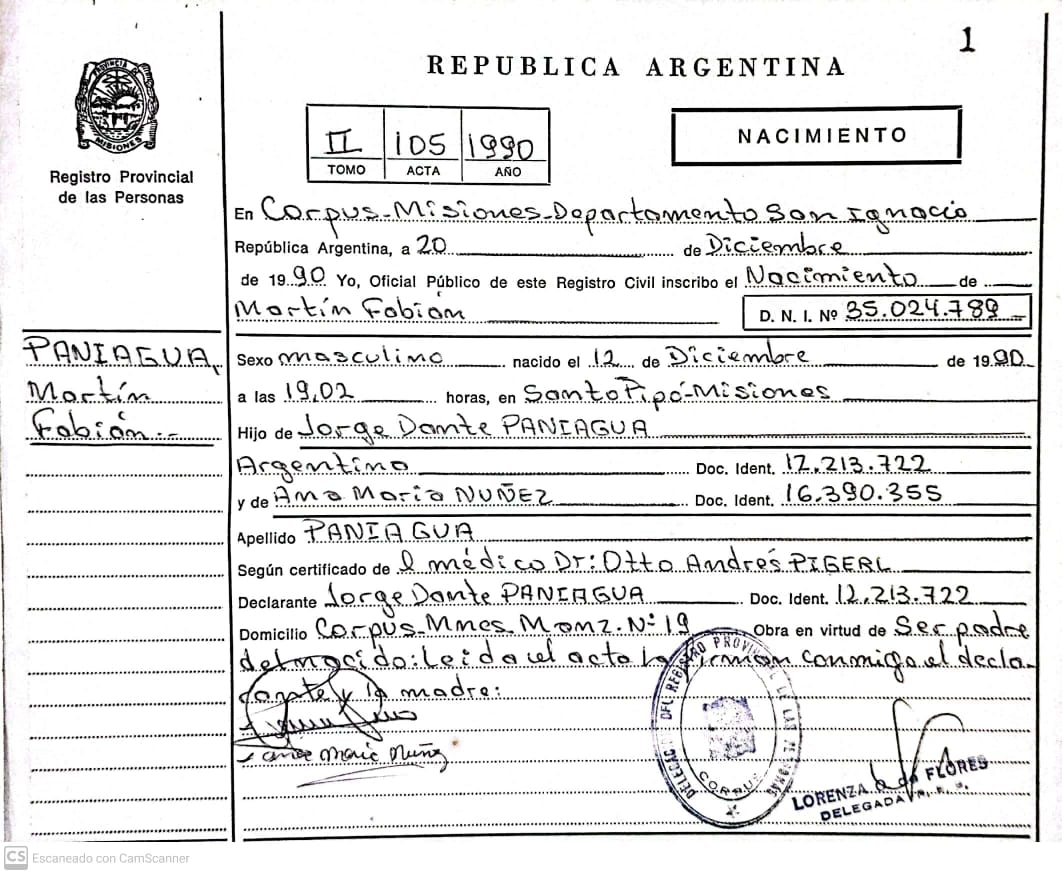 1
REPUBLICA ARGENTINA
PROVINCIA DE MISIONES
Registro Provincial
de las Personas
II 105 1990
TOMO ACTA AÑO
NACIMIENTO
En Corpus-Misiones-Departamento San Ignacio
República Argentina, a 20 de Diciembre
de 1990 Yo, Oficial Público de este Registro Civil inscribo el Nacimiento de
Martín Fabián D. N. I. Nº 35.024.789
PANIAGUA,
Martín
Fabián.-
Sexo masculino nacido el 12 de Diciembre de 1990
a las 19,02 horas, en Santo Pipó-Misiones
Hijo de Jorge Dante PANIAGUA
Argentino Doc. Ident. 12.213.722
y de Ana María NUÑEZ Doc. Ident. 16.390.355
Apellido PANIAGUA
Según certificado de el médico Dr: Otto Andrés PIGERL
Declarante Jorge Dante PANIAGUA Doc. Ident. 12.213.722
Domicilio Corpus-Mnes. Manz. Nº 19 Obra en virtud de Ser padre
del nacido: Leida el acta la firman conmigo el decla-
rante y la madre:
Ana María Nuñez
DELEGACION DEL REGISTRO PROVINCIAL DE LAS PERSONAS
CORPUS
LORENZA de FLORES
DELEGADA R. P. P.
CS Escaneado con CamScanner